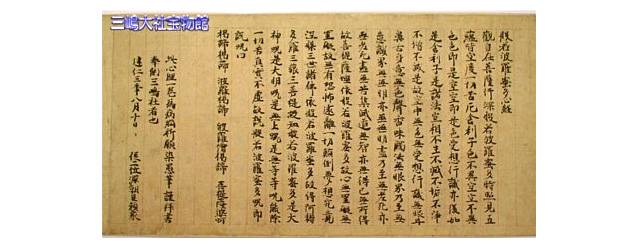 三嶋大社宝物館
般若波羅蜜多心経
觀自在菩薩行深般若波羅蜜多時照見五
蘊皆空度一切苦厄舎利子色不異空空不異
色色即是空空即是色受想行識亦復如
是舎利子是諸法空相不生不滅不垢不淨
不増不減是故空中無色無受想行識無眼耳
鼻舌身意無色聲香味觸法無眼界乃至無
意識界無無明亦無無明盡乃至無老死亦
無老死盡無苦集滅道無智亦無得以無所得
故菩提薩埵依般若波羅蜜多故心無罣礙無
罣礙故無有恐怖遠離一切顛倒夢想究竟
涅槃三世諸佛依般若波羅蜜多故得阿耨
多羅三藐三菩提故知般若波羅蜜多是大
神呪是大明呪是無上呪是無等等呪能除
一切苦真實不虚故説般若波羅蜜多呪即
説呪曰
掲諦掲諦 波羅掲諦 波羅僧掲諦 菩提薩婆訶
此心経一巻為病痾祈願染愚筆謹拝書
奉納三嶋社者也
建仁三季八月十日 従二位源朝臣頼家